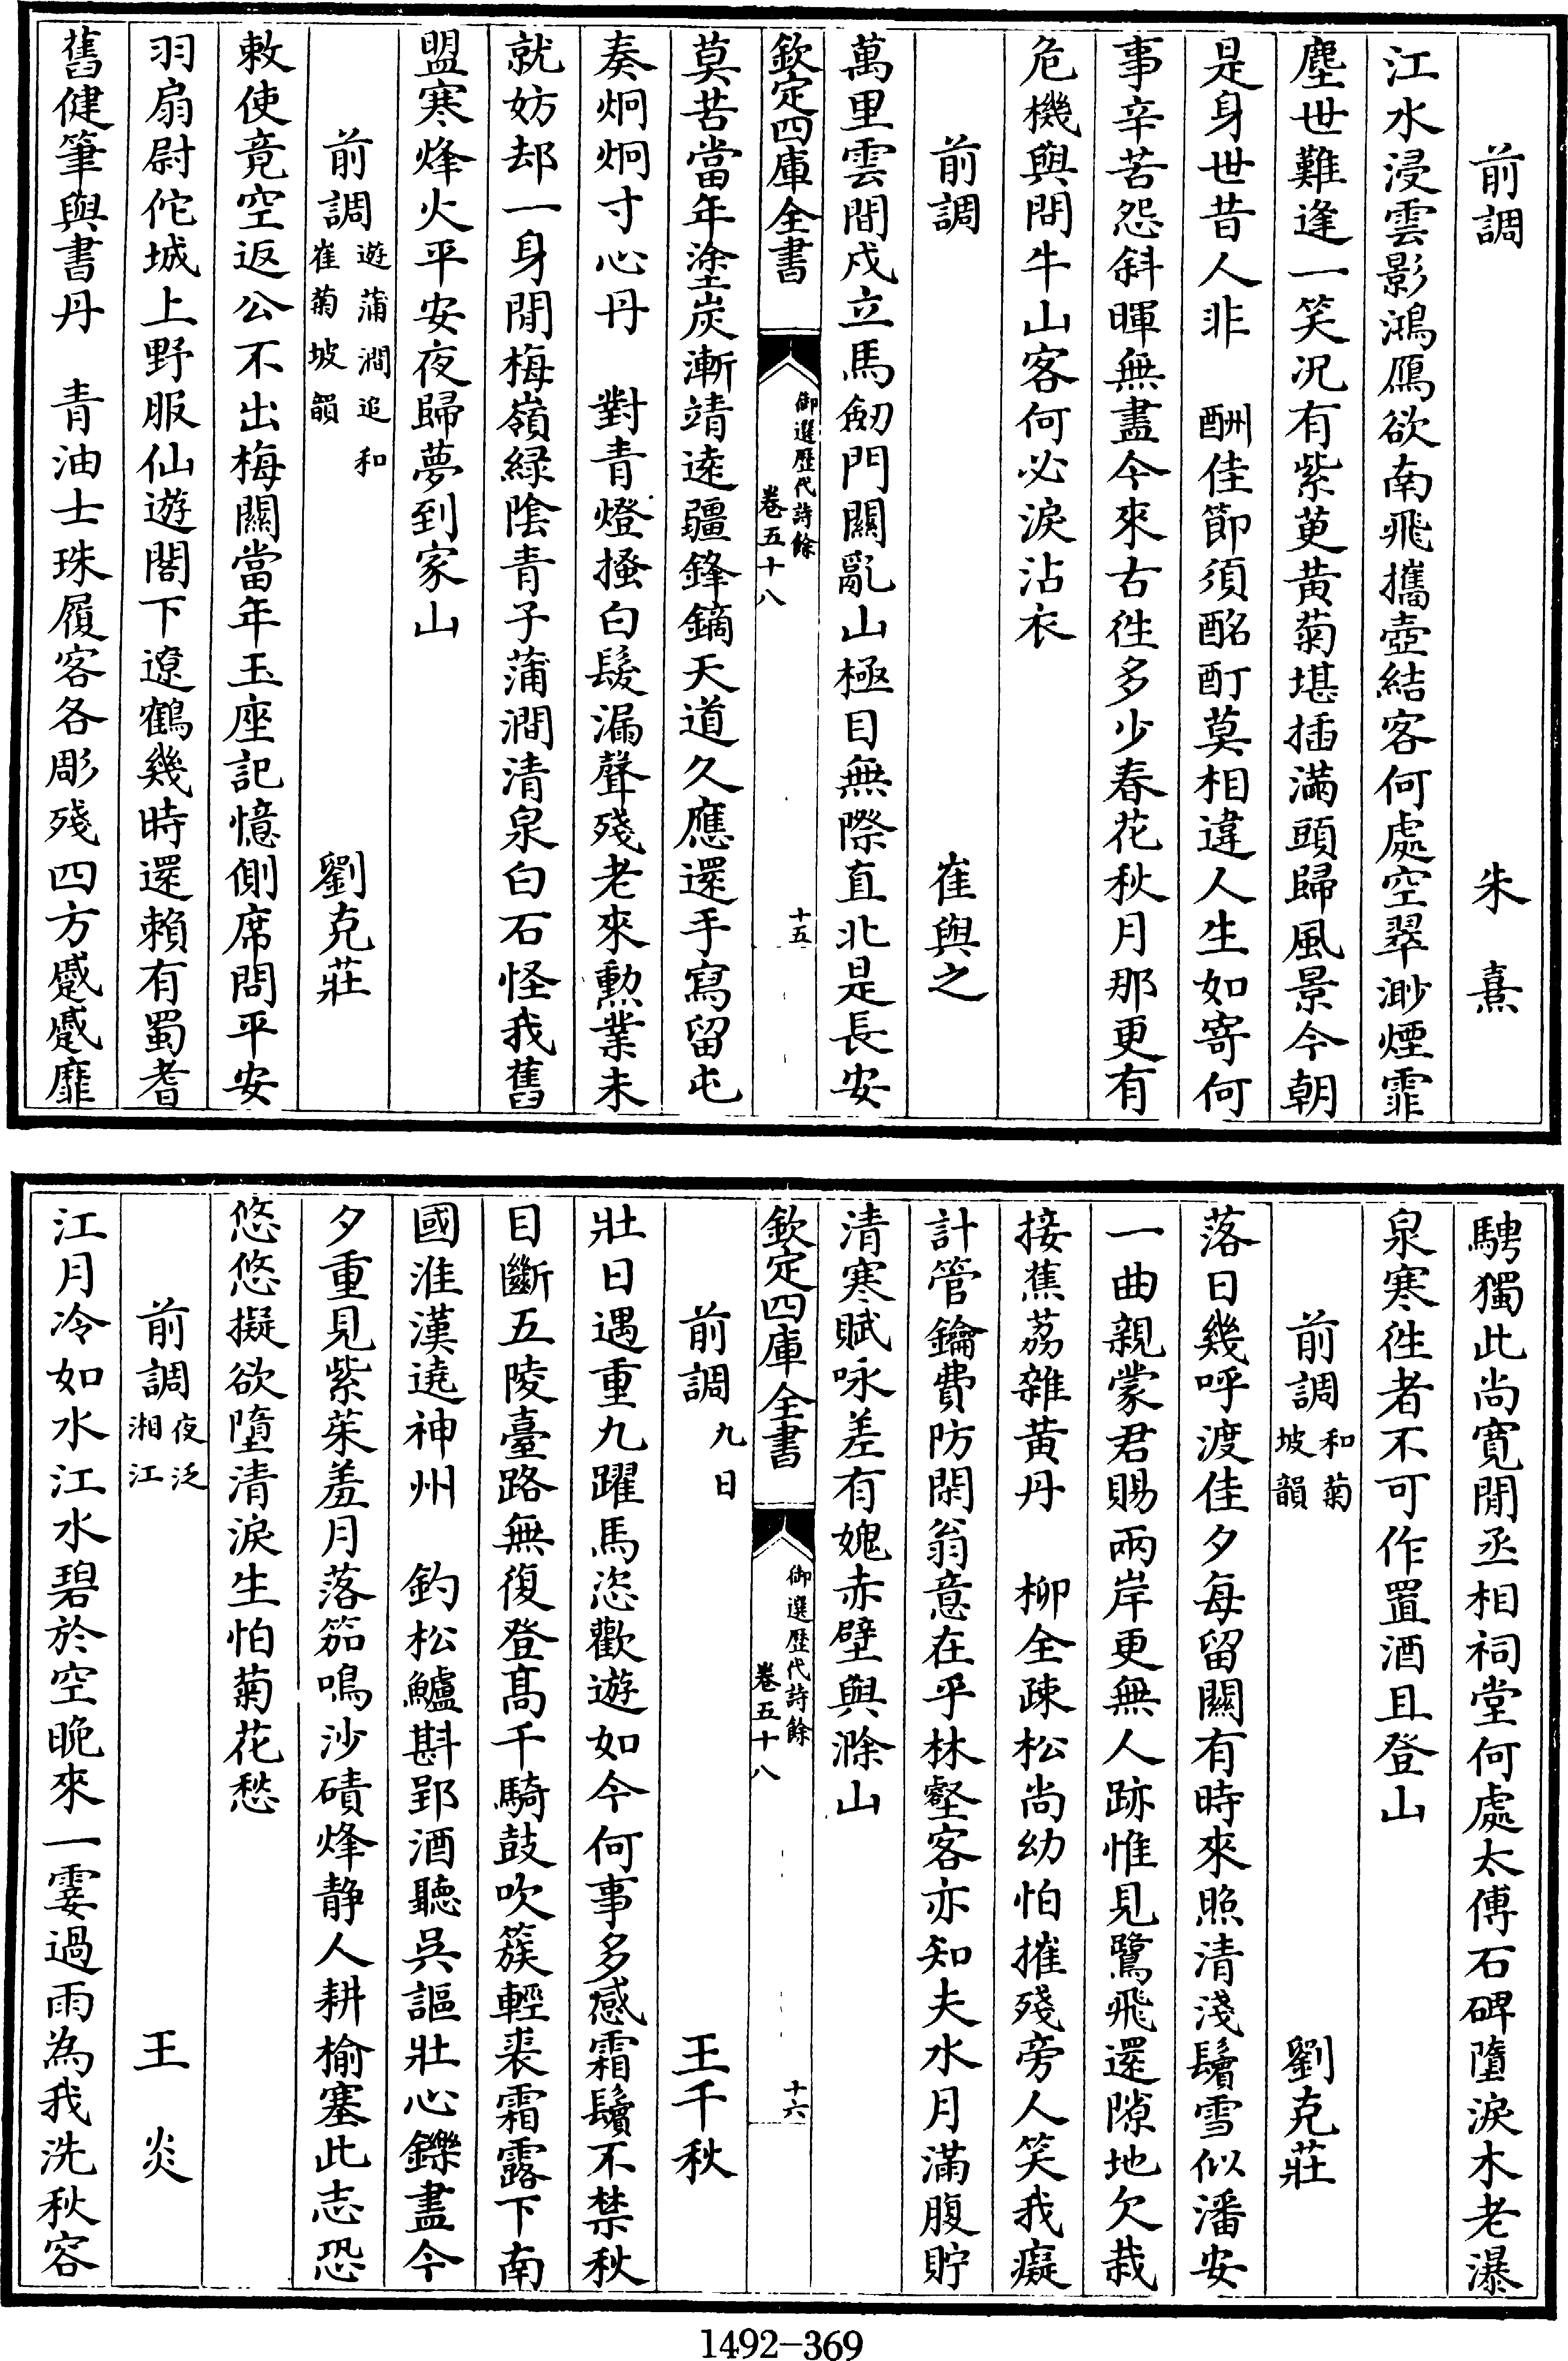 前調　朱熹
江水浸雲影鴻鴈欲南飛攜壺結客何處空翠渺煙霏
塵世難逢一笑況有紫萸黃菊堪插滿頭歸風景今朝
是身世昔人非　酬佳節須酩酊莫相違人生如寄何
事辛苦怨斜暉無盡今來古徃多少春花秋月那更有
危機與問牛山客何必淚沾衣
前調　崔與之
萬里雲間戍立馬劒門關亂山極目無際直北是長安
欽定四庫全書
御選歷代詩餘
卷五十八
十五
莫苦當年塗炭漸靖逺疆鋒鏑天道久應還手寫留屯
奏炯炯寸心丹　對青燈搔白髮漏聲殘老來勲業未
就妨却一身閒梅嶺緑陰青子蒲澗清泉白石怪我舊
盟寒烽火平安夜歸夢到家山
前調遊蒲澗追和崔菊坡韻　劉克莊
敕使竟空返公不出梅關當年玉座記憶側席問平安
羽扇尉佗城上野服仙遊閣下遼鶴幾時還賴有蜀耆
舊健筆與書丹　青油士珠履客各彫殘四方蹙蹙靡
騁獨此尚寛閒丞相祠堂何處太傅石碑墮淚木老瀑
泉寒徃者不可作置酒且登山
前調和菊坡韻　劉克莊
落日幾呼渡佳夕每留關有時來照清淺鬢雪似潘安
一曲親蒙君賜兩岸更無人跡惟見鷺飛還隙地欠栽
接蕉荔雜黃丹　柳全疎松尚幼怕摧殘旁人笑我癡
計管鑰費防閑翁意在乎林壑客亦知夫水月滿腹貯
清寒賦咏差有媿赤壁與滁山
欽定四庫全書
御選歷代詩餘
卷五十八
十六
前調九日　王千秋
壯日遇重九躍馬恣歡遊如今何事多感霜鬢不禁秋
目斷五陵臺路無復登髙千騎鼓吹簇輕裘霜露下南
國淮漢遶神州　釣松鱸斟郢酒聽吳謳壯心鑠盡今
夕重見紫茱羞月落笳鳴沙磧烽静人耕榆塞此志恐
悠悠擬欲墮清淚生怕菊花愁
前調夜泛湘江　王炎
江月冷如水江水碧於空晚來一霎過雨為我洗秋容
1492-369